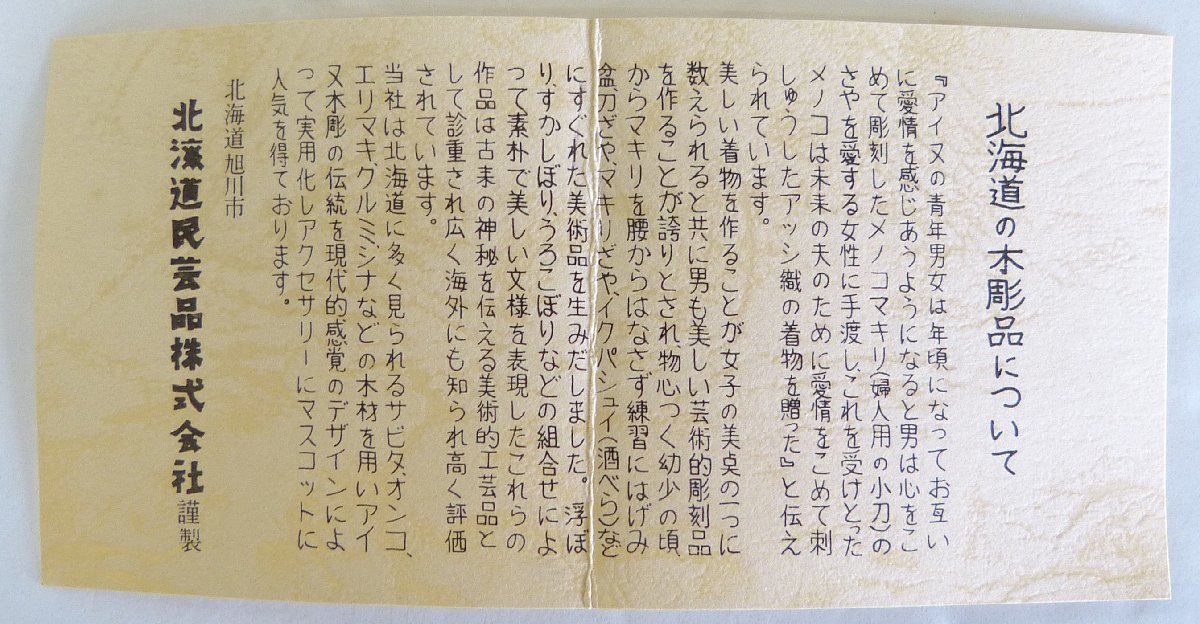 北海道の木彫品について
『アイヌの青年男女は年頃になってお互い
に愛情を感じあうようになると男は心をこ
めて彫刻したメノコマキリ(婦人用の小刀)の
さやを愛する女性に手渡し、これを受けとった
メノコは未来の夫のために愛情をこめて刺
しゅうしたアッシ織の着物を贈った』と伝え
られています。
美しい着物を作ることが女子の美点の一つに
数えられると共に男も美しい芸術的彫刻品
を作ることが誇りとされ物心つく幼少の頃
からマキリを腰からはなさず練習にはげみ
盆、刀ざや、マキリざや、イクパシュイ(酒べら)など
にすぐれた美術品を生みだしました。浮ぼ
り、すかしぼり、うろこぼりなどの組合せによ
って素朴で美しい文様を表現したこれらの
作品は古来の神秘を伝える美術的工芸品と
して診重され広く海外にも知られ高く評価
されています。
当社は北海道に多く見られるサビタ、オンコ、
エリマキ、グルミ、シナなどの木材を用いアイ
ヌ木彫の伝統を現代的感覚のデザインによ
って実用化しアクセサリーにマスコットに
人気を得ております。
北海道旭川市
北海道民芸品株式会社謹製